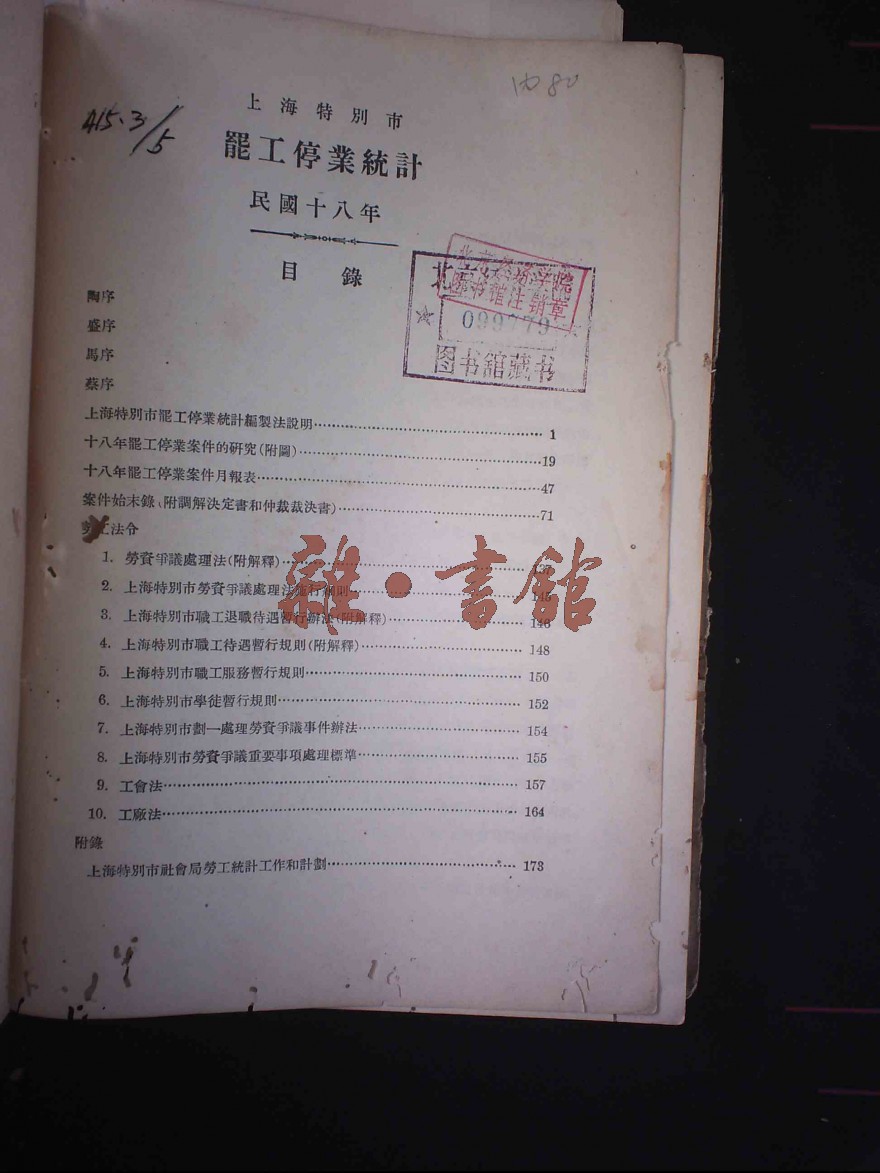 1080
415.3/5
上海特別市
罷工停業統計
民國十八年
目錄
图书館注銷章
099779
图书舘藏书
陶序
盛序
馬序
蔡序
上海特別市罷工停業統計編製法說明……1
十八年罷工停業案件的研究(附圖)……19
十八年罷工停業案件月報表……47
案件始末錄(附調解決定書和仲裁裁決書)……71
勞工法令
1. 勞資爭議處理法(附解釋)……
2. 上海特別市勞資爭議處理法施行細則……145
3. 上海特別市職工退職待遇暫行辦法(附解釋)……146
4. 上海特別市職工待遇暫行規則(附解釋)……148
5. 上海特別市職工服務暫行規則……150
6. 上海特別市學徒暫行規則……152
7. 上海特別市劃一處理勞資爭議事件辦法……154
8. 上海特別市勞資爭議重要事項處理標準……155
9. 工會法……157
10. 工廠法……164
附錄
上海特別市社會局勞工統計工作和計劃……173
雜·書館